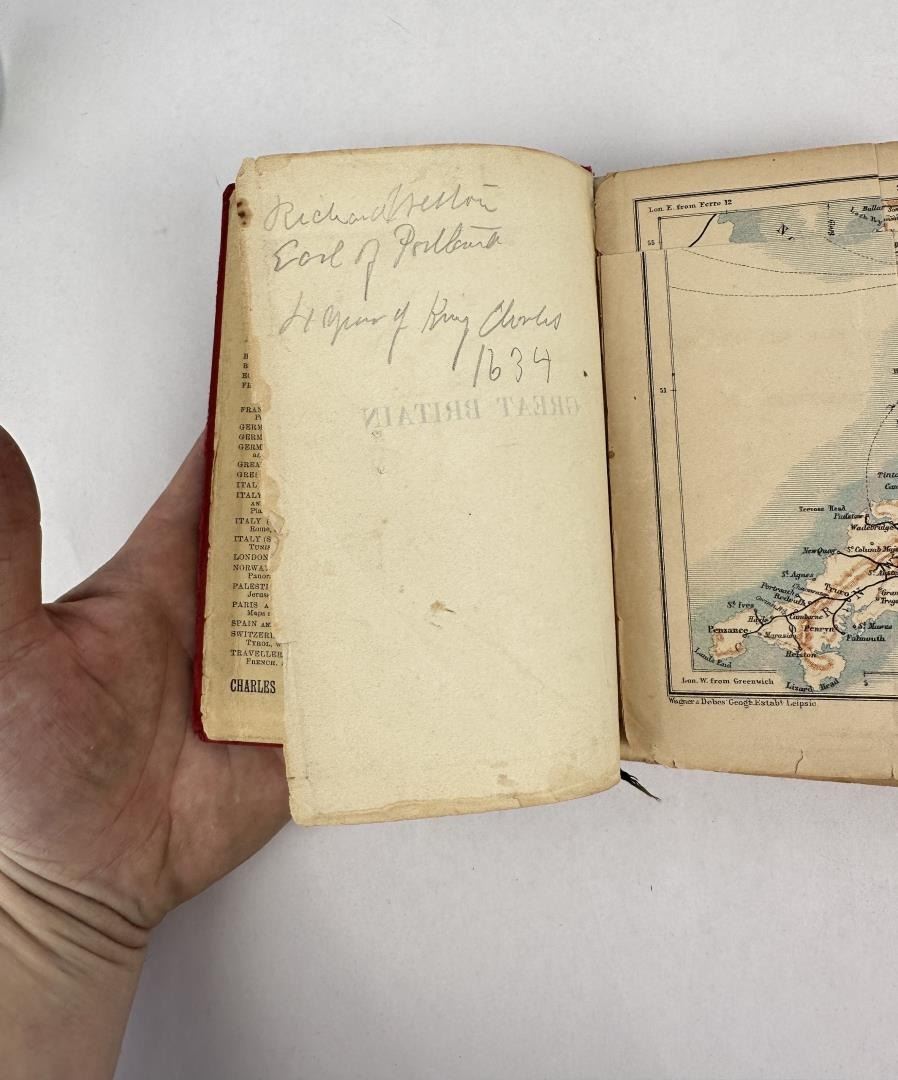 Richard Weston
Earl of Portland
4 Year of King Charles
1634
GREAT BRITAIN
FRAN
GERM
GERM
GERM
GREA
GRE
ITAL
ITALY
ITALY (
Rome,
ITALY (S
TUNIS
LONDON
NORWA
Panor
PALESTI
Jerus
PARIS A
Maps
SPAIN AN
SWITZER
TYROL, W
TRAVELLER
FRENCH,
CHARLES
Lon. E. from Ferro 12
55
51
Trevose Head
Padstow
Wadebridge
New Quay
St. Columb Maj
St. Agnes
St. Aust
Portreath
Truro
Redruth
St. Ives
Hayle
Camborne
St. Mawes
Penzance
Marazion
Penryn
Falmouth
Helston
Lands End
Lizard Head
Lon. W. from Greenwich
5
Wagner & Debes' Geogh. Estabt. Leipsic